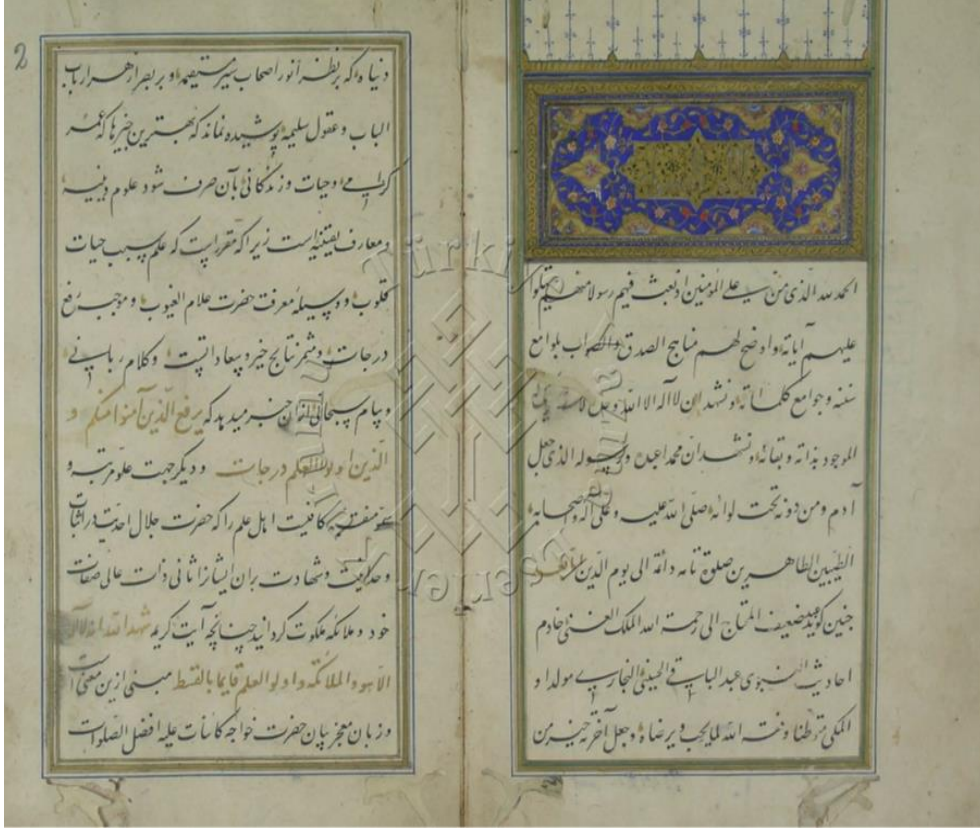 الحمد لله الذی منّ علی المؤمنین اذ بعث فیهم رسولا منهم یتلوا
علیهم آیاته و اوضح لهم مناهج الصدق والصواب بلوامع
سننه و جوامع کلماته و نشهد ان لا اله الا الله وحده لا شریک له
الموجود بذاته و بقائه و نشهد ان محمدا عبده و رسوله الذی جعل
آدم و من دونه تحت لوائه صلی الله علیه و علی آله و اصحابه
الطیبین الطاهرین صلوة تامه دائمة الی یوم الدین
چنین کوید عبد ضعیف المحتاج الی رحمة الله الملک الغنی خادم
احادیث النبوی عبد الباقی الحسینی البخاری مولدا و
المکی متوطنا وفقه الله لما یحب و یرضاه و جعل آخرته خیر من
2
دنیاه که بر نظر انور اصحاب سیر مستقیمه و بر بصر ازهر ارباب
الباب و عقول سلیمه پوشیده نماند که بهترین چیزها که عمر
کرامی و حیات و زندکانی بآن صرف شود علوم دینیه
و معارف یقینیه است زیرا که مقررست که علم سبب حیات
قلوب و وسیلهٔ معرفت حضرت علام الغیوب و موجب رفع
درجات و مثمر نتایج خیر و سعاداتست و کلام ربانی
و پیام سبحانی ازان خبر میدهد که یرفع الذین آمنوا منکم و
الذین اوتوا العلم درجات و دیکر جهت علو مرتبه و
منقبت کافیست اهل علم را که حضرت جلال احدیت در اثبات
وحدانیت و شهادت بران ایشانرا ثانی ذات عالی صفات
خود و ملائکه ملکوت کردانید چنانچه آیت کریمه شهد الله انه لا اله
الا هو و الملائکة و اولو العلم قایما بالقسط مبنی ازین معنی است
و زبان معجز بیان حضرت خواجه کائنات علیه افضل الصلوات
Türkiye